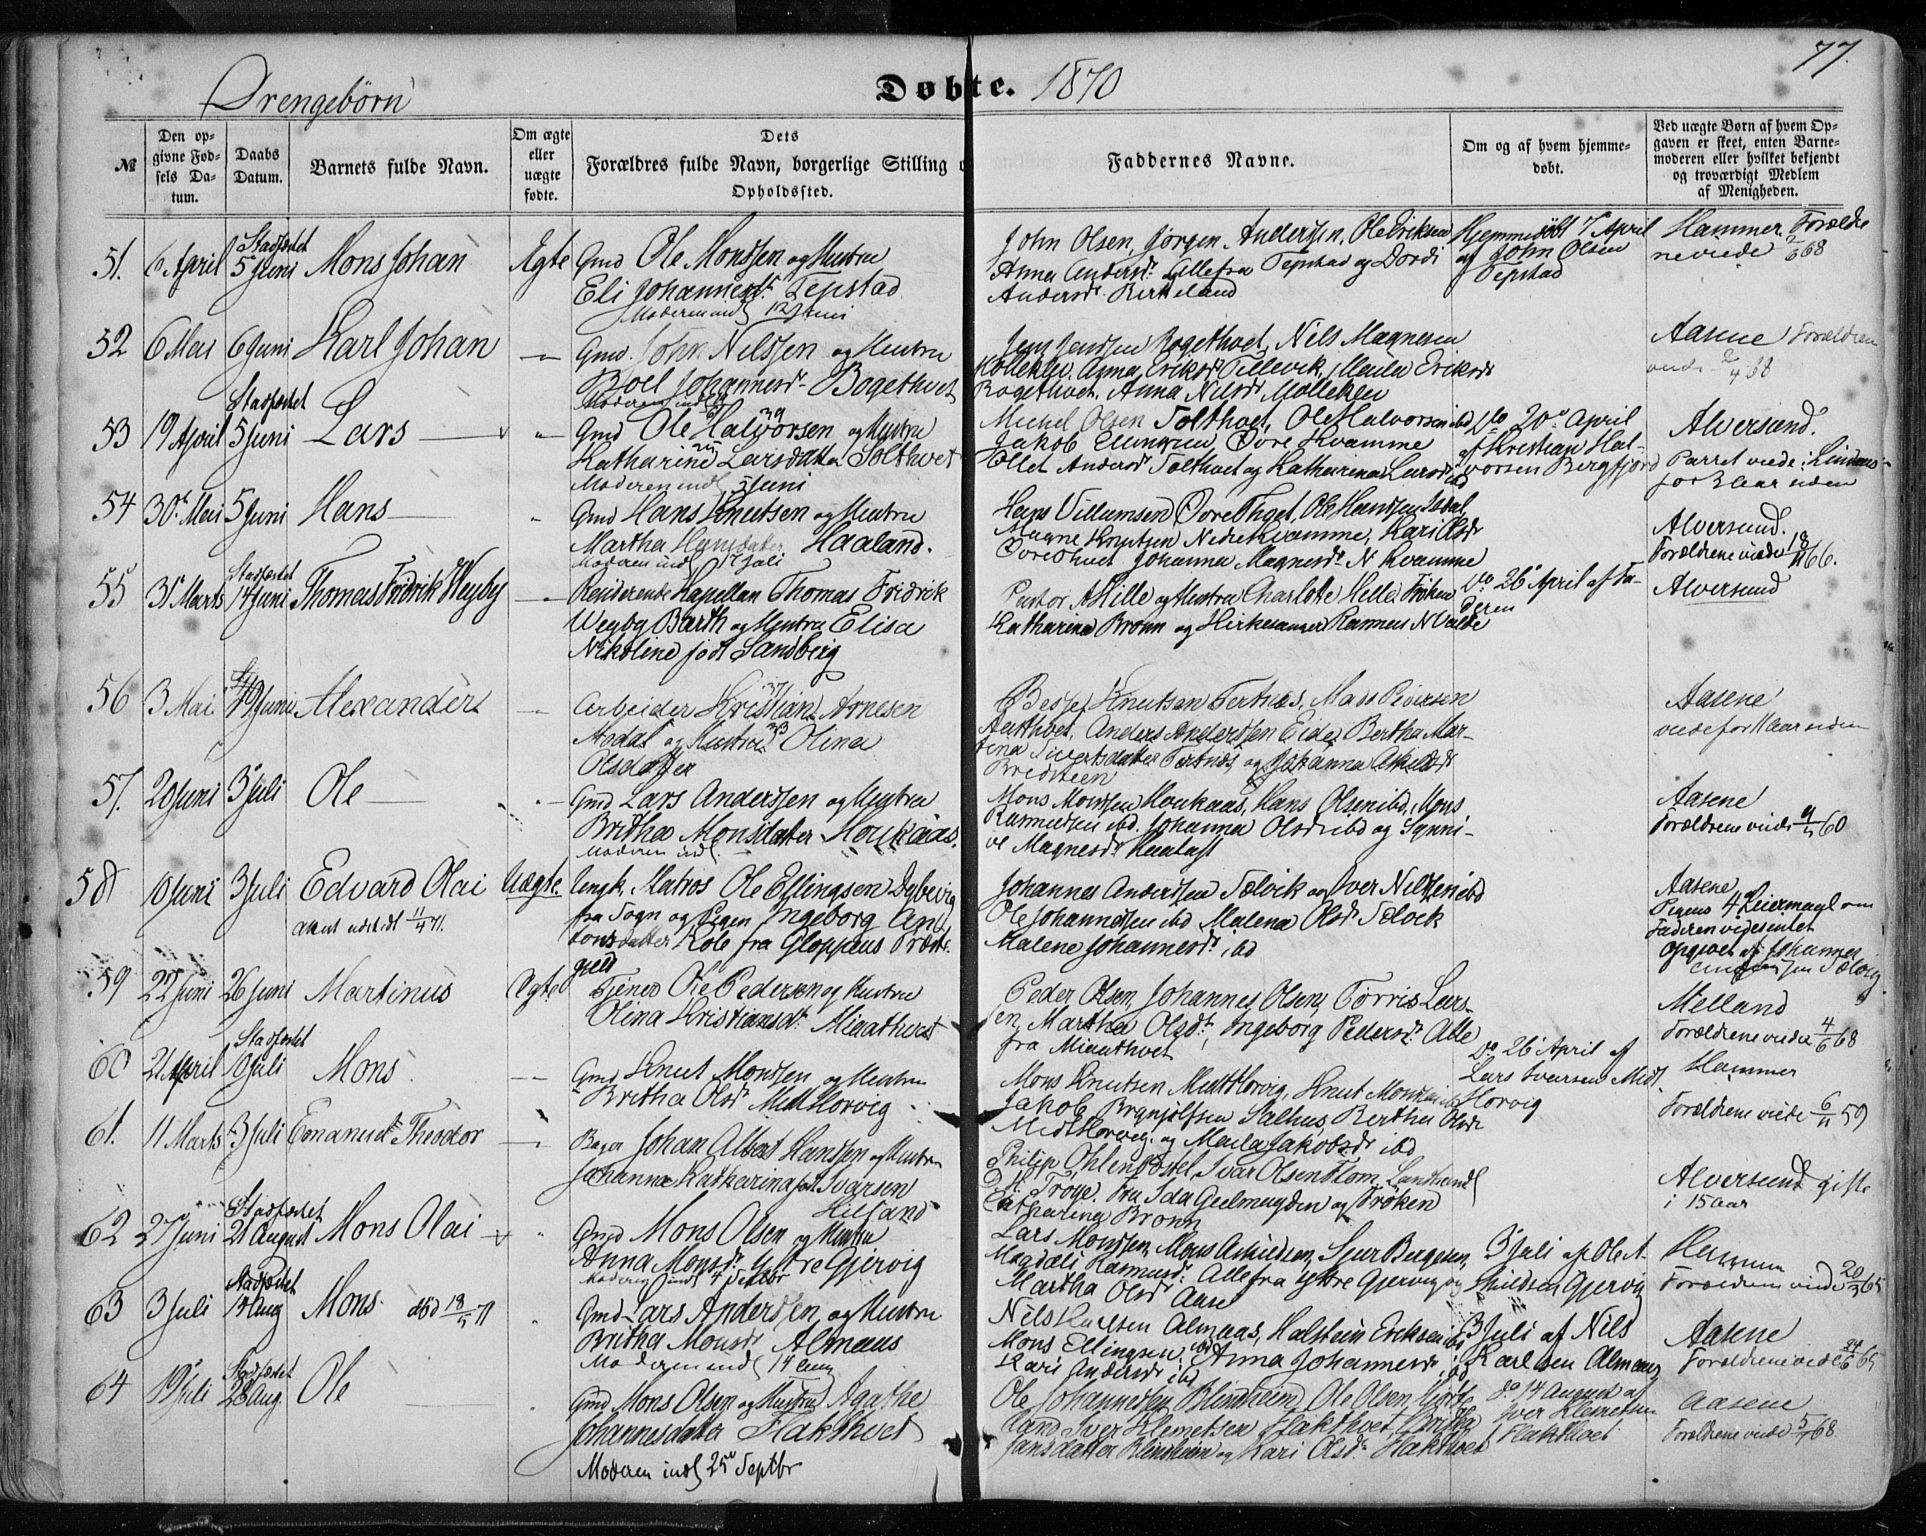 77.
Drengebørn
Døbte. 1870
№
Den opgivne Fødsels Datum.
Daabs Datum.
Barnets fulde Navn.
Om ægte eller uægte fødte.
Dets Forældres fulde Navn, borgerlige Stilling o
Opholdssted.
Faddernes Navne.
Om og af hvem hjemmedøbt.
Ved uægte Børn af hvem Opgaven er skeet, enten Barnemoderen eller hvilket bekjendt og troværdigt Medlem af Menigheden.
51. 6 April Stadfæstet 5 Juni Mons Johan Ægte Gmd Ole Monsen og Hustru
Eli Johannesdt. Tepstad
Moderen indl 12 Juni
John Olsen, Jørgen Andersen, Ole Eriksen
Anna Andersdt. Alle fra Tepstad og Dordi
Andersdt. Birkeland
Hjemmedøbt 7 April
af John Olsen
Tepstad
Hammer. Forældre
ne viede 2/6 68
52 6 Mai 6 Juni Karl Johan Gmd. John Nilssen og Hustru
Boel Johannesdt. Bogethvet
Nils Magnesen
Anna Eriksdt
Anna Nilsdt Molleklev
Aasene Forældrene
viede 2/4 68
53 19 April Stadfæstet 5 Juni Lars Gmd Ole Halvorsen og Hustru
Katharine Larsdatter Tolthvet
Moderen indl 5 Juni
Michel Olsen Tolthvet, Ole Halvorsen ibd
Jakob Øvre Kvamme
Ellet Andersdt Tolthvet og Katharina Larsdt
Do 20 April
af Kristian Hal-
vorsen Bergfjord
Alversund.
Parret viede i Lindaas
for 3 Aar siden
54 30 Mai 5 Juni Hans Gmd Hans Knutsen og Hustru
Martha Hansdatter Haaland.
Moderen indl Juli
Hans Villumsen Øvre Thvet, Ole Hansen Isdal,
Magne Knutsen Nedre Kvamme, Kari Olsdt
Øvre Thvet Johanna Magnesdt N Kvamme
Alversund.
Forældrene viede 18/ 66.
55 31 Marts Stadfæstet 14 Juni Thomas Fridrik Weyby Residerende Kapellan Thomas Fridrik
Weyby Barth og Hustru Elisa
Nikoline født Sandberg
Pastor A Hille og Hustru Charlotte Hille. Frøken
Katharina Brønn og Kirkesanger Rasmus N Valde
Do 26 April af Fa-
deren
Alversund
56 3 Mai 19 Juni Alexander Arbeider Kristian Arnesen
Aadal og Hustru Olina
Olsdatter
Knutsen Tertnæs, Mads Piversen
Anders Andersen Eide, Bertha Mar-
tina Sivertsdatter Tertnæs og Johanna
Bredsteen
Aasene
viede for 1 Aar siden
57. 20 Juni 3 Juli Ole Gmd Lars Anderssen og Hustru
Britha Monsdatter Houkaas.
Moderen indl.
Mons Monsen Houkaas, Hans Olsen ibd, Mons
Rasmussen ibd. Johanna Olsdt ibd og Synni-
ve Magnesdt
Aasene
Forældrene viede 9/ 60
58 10 Juni 3 Juli Edvard Olai Uægte. Ungk. Matros Ole Ellingsen Dybevig
fra Sogn og Pigen Ingeborg An-
tonsdatter Kolv fra Gloppens Præste-
gjeld
attest udstedt 1/4 71.
Johannes Andersen Tælvik og Iver Nilssen ibd
Ole Johannessen ibd Malena Olsdt Tælvik
Malene Johannesdt. ibd
Aasene
Pigens 4 Leiermaal
Faderen videsentlet
opgivet af Johannes
59 22 Juni 26 Juni Martinus Ægte Tjener Ole Pedersen og Hustru
Olina Kristiansdt. Miaathvet
Peder Olsen, Johannes Olsen, Torris Lars-
sen, Martha Olsdt, Ingeborg Pedersdt. Alle
fra Miaathvet
Melland
Forældrene viede 4/6 68
60 21 April Stadfæstet 10 Juli Mons. Gmd Knut Monsen og Hustru
Britha Olsdt Midthorvig
Mons Knutsen Midthorvig, Knut Monsen ibd
Jakob Brynjolfsen Salhus, Bertha Olsdt
Midthorvig. og Marta Jakobsdt ibd
Do 26 April af
Lars Ivarsen Midt-
Horvig
Hammer
Forældrene viede 6/11 59
61. 11 Marts 3 Juli Emanuel Theodor Bager Johan Albert Hanssen og Hustru
Johanna Katharina født Ivarsen
Philip Ivar Olsen Flom, Landhandl
Troye. Fru Ida Geelmuyden og Frøken
Catharina Brønn
Alversund gifte
i 15 Aar
62 27 Juni Stadfæstet 21 August Mons Olai Gmd Mons Olsen og Hustru
Anna Monsdt. Ystre Gjervig
Moderen indl 4 Septbr
Lars Monsen, Mons Sjur Bergesen,
Magdeli Rasmusdt. Alle fra ytre Gjervig og
Martha Olsdt Aase
3 Juli af Ole A-
Gjervig
Hammer
Forældrene viede 20/ 65
63 3 Juli Stadfæstet 14 Aug Mons. død 18/5 71 Gmd Lars Andersen og Hustru
Britha Monsdt Almaas
Moderen indl 14 Aug
Nils Karlsen Almaas, Halstein Eriksen ibd
Mons Ellingsen ibd Anna Johannesdt ibd
Kari Andersdt ibd
3 Juli af Nils
Karlsen Almaas
Aasene
Forældrene viede 24/6 65
64 19 Juli Stadfæstet 28 Aug. Ole Gmd Mons Olsen og Hustru Agathe
Johannesdatter Flakthvet
Moderen indl 25 Septbr
Ole Johannessen Blindheim, Ole Olsen Hjorte-
land Iver Klemetsen Flakthvet, Britha
Jansdatter Blindheim og Kari Olsdt. Flakthvet
do 14 August af
Iver Klemetsen
Flakthvet
Aasene
Forældrene viede 5/ 68